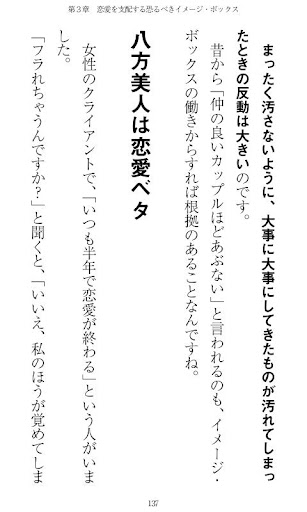 第3章　恋愛を支配する恐るべきイメージ・ボックス
まったく汚さないように、大事に大事にしてきたものが汚れてしまっ
たときの反動は大きいのです。
昔から「仲の良いカップルほどあぶない」と言われるのも、イメージ・
ボックスの働きからすれば根拠のあることなんですね。
八方美人は恋愛ベタ
女性のクライアントで、「いつも半年で恋愛が終わる」という人がいま
した。
「フラれちゃうんですか？」と聞くと、「いいえ、私のほうが覚めてしま
137